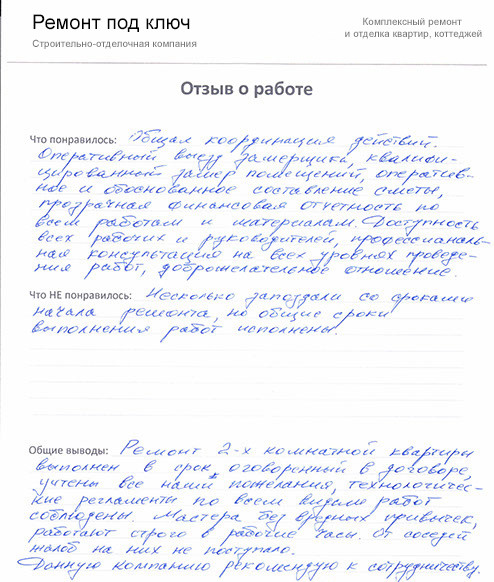 Ремонт под ключ
Строительно-отделочная компания
Комплексный ремонт
и отделка квартир, коттеджей
Отзыв о работе
Что понравилось: Общая координация действий.
Оперативный выезд замерщика, квалифи-
цированный замер помещений, оператив-
ное и обоснованное составление сметы,
прозрачная финансовая отчетность по
всем работам и материалам. Доступность
всех рабочих и руководителей, профессиональ-
ная консультация на всех уровнях проведе-
ния работ, доброжелательное отношение.
Что НЕ понравилось: Несколько запоздали со сроками
начала ремонта, но общие сроки
выполнения работ исполнены.
Общие выводы: Ремонт 2-х комнатной квартиры
выполнен в срок, оговоренный в договоре,
учтены все наши пожелания, технологичес-
кие регламенты по всем видам работ
соблюдены. Мастера без вредных привычек,
работают строго в рабочие часы. От соседей
жалоб на них не поступало.
Данную компанию рекомендую к сотрудничеству.